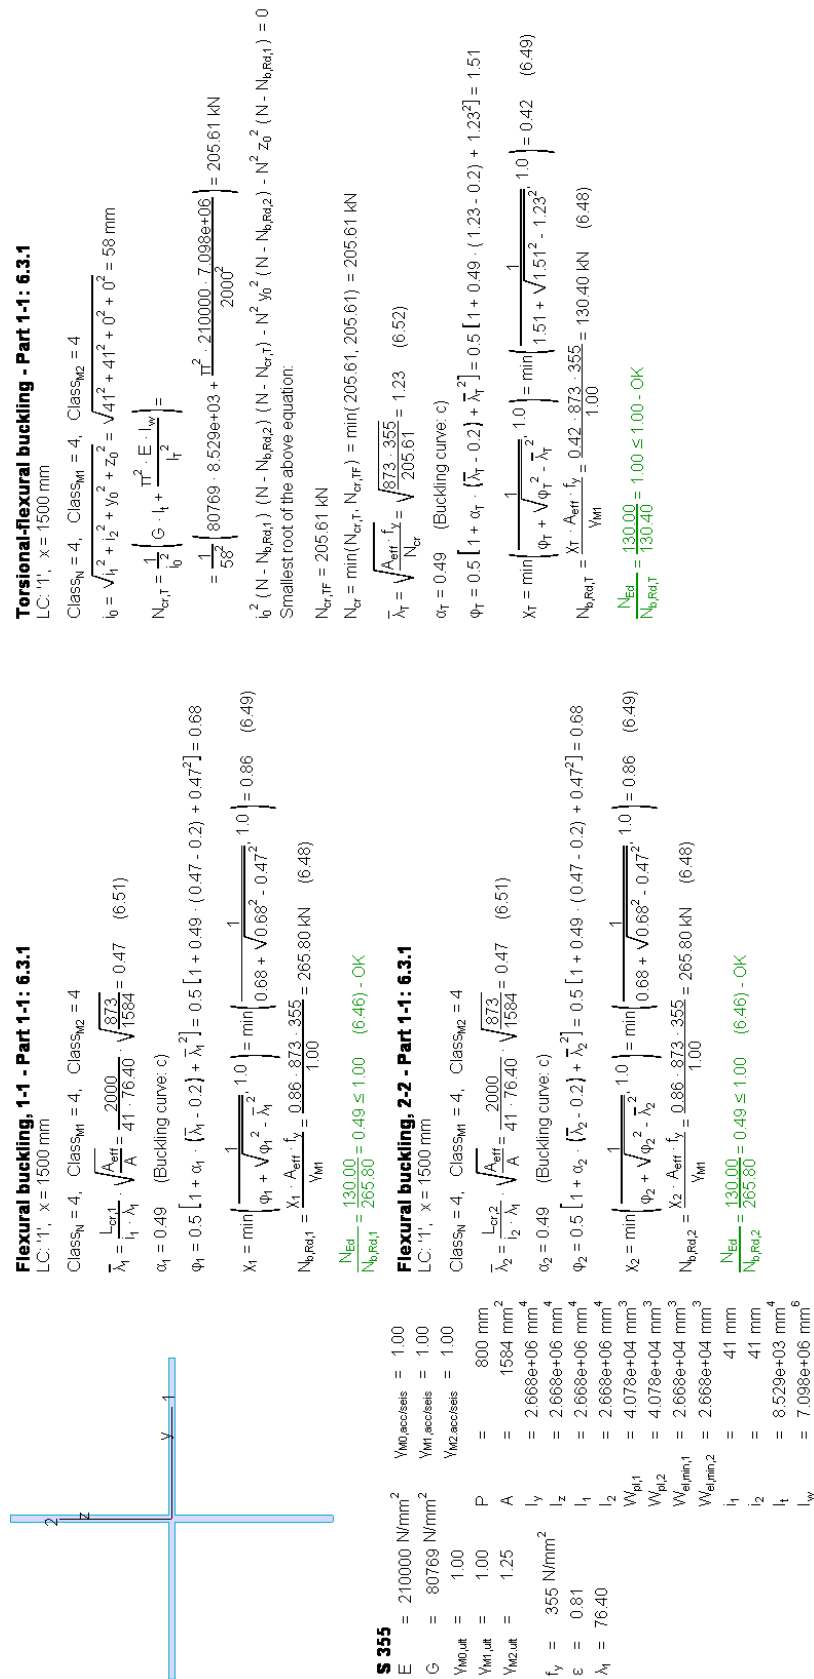 2
z
y
1
S 355
E = 210000 N/mm²
G = 80769 N/mm²
γM0,ult = 1.00
γM1,ult = 1.00
γM2,ult = 1.25
fy = 355 N/mm²
ε = 0.81
λ1 = 76.40
γM0,acc/seis = 1.00
γM1,acc/seis = 1.00
γM2,acc/seis = 1.00
P = 800 mm
A = 1584 mm²
Iy = 2.668e+06 mm⁴
Iz = 2.668e+06 mm⁴
I1 = 2.668e+06 mm⁴
I2 = 2.668e+06 mm⁴
Wpl,1 = 4.078e+04 mm³
Wpl,2 = 4.078e+04 mm³
Wel,min,1 = 2.668e+04 mm³
Wel,min,2 = 2.668e+04 mm³
i1 = 41 mm
i2 = 41 mm
It = 8.529e+03 mm⁴
Iw = 7.098e+06 mm⁶
Flexural buckling, 1-1 - Part 1-1: 6.3.1
LC: '1', x = 1500 mm
ClassN = 4, ClassM1 = 4, ClassM2 = 4
λ̄1 = Lcr,1 / (i1 · λ1) · √(Aeff / A) = 2000 / (41 · 76.40) · √(873 / 1584) = 0.47 (6.51)
α1 = 0.49 (Buckling curve: c)
φ1 = 0.5 [1 + α1 · (λ̄1 - 0.2) + λ̄1²] = 0.5 [1 + 0.49 · (0.47 - 0.2) + 0.47²] = 0.68
χ1 = min(1 / (φ1 + √(φ1² - λ̄1²)), 1.0) = min(1 / (0.68 + √(0.68² - 0.47²)), 1.0) = 0.86 (6.49)
Nb,Rd,1 = χ1 · Aeff · fy / γM1 = 0.86 · 873 · 355 / 1.00 = 265.80 kN (6.48)
NEd / Nb,Rd,1 = 130.00 / 265.80 = 0.49 ≤ 1.00 (6.46) - OK
Flexural buckling, 2-2 - Part 1-1: 6.3.1
LC: '1', x = 1500 mm
ClassN = 4, ClassM1 = 4, ClassM2 = 4
λ̄2 = Lcr,2 / (i2 · λ1) · √(Aeff / A) = 2000 / (41 · 76.40) · √(873 / 1584) = 0.47 (6.51)
α2 = 0.49 (Buckling curve: c)
φ2 = 0.5 [1 + α2 · (λ̄2 - 0.2) + λ̄2²] = 0.5 [1 + 0.49 · (0.47 - 0.2) + 0.47²] = 0.68
χ2 = min(1 / (φ2 + √(φ2² - λ̄2²)), 1.0) = min(1 / (0.68 + √(0.68² - 0.47²)), 1.0) = 0.86 (6.49)
Nb,Rd,2 = χ2 · Aeff · fy / γM1 = 0.86 · 873 · 355 / 1.00 = 265.80 kN (6.48)
NEd / Nb,Rd,2 = 130.00 / 265.80 = 0.49 ≤ 1.00 (6.46) - OK
Torsional-flexural buckling - Part 1-1: 6.3.1
LC: '1', x = 1500 mm
ClassN = 4, ClassM1 = 4, ClassM2 = 4
i0 = √(i1² + i2² + y0² + z0²) = √(41² + 41² + 0² + 0²) = 58 mm
Ncr,T = 1 / i0² (G · It + π² · E · Iw / lT²) =
= 1 / 58² (80769 · 8.529e+03 + π² · 210000 · 7.098e+06 / 2000²) = 205.61 kN
i0² (N - Nb,Rd,1) (N - Nb,Rd,2) (N - Ncr,T) - N² y0² (N - Nb,Rd,2) - N² z0² (N - Nb,Rd,1) = 0
Smallest root of the above equation:
Ncr,TF = 205.61 kN
Ncr = min(Ncr,T, Ncr,TF) = min(205.61, 205.61) = 205.61 kN
λ̄T = √(Aeff · fy / Ncr) = √(873 · 355 / 205.61) = 1.23 (6.52)
αT = 0.49 (Buckling curve: c)
φT = 0.5 [1 + αT · (λ̄T - 0.2) + λ̄T²] = 0.5 [1 + 0.49 · (1.23 - 0.2) + 1.23²] = 1.51
χT = min(1 / (φT + √(φT² - λ̄T²)), 1.0) = min(1 / (1.51 + √(1.51² - 1.23²)), 1.0) = 0.42 (6.49)
Nb,Rd,T = χT · Aeff · fy / γM1 = 0.42 · 873 · 355 / 1.00 = 130.40 kN (6.48)
NEd / Nb,Rd,T = 130.00 / 130.40 = 1.00 ≤ 1.00 - OK